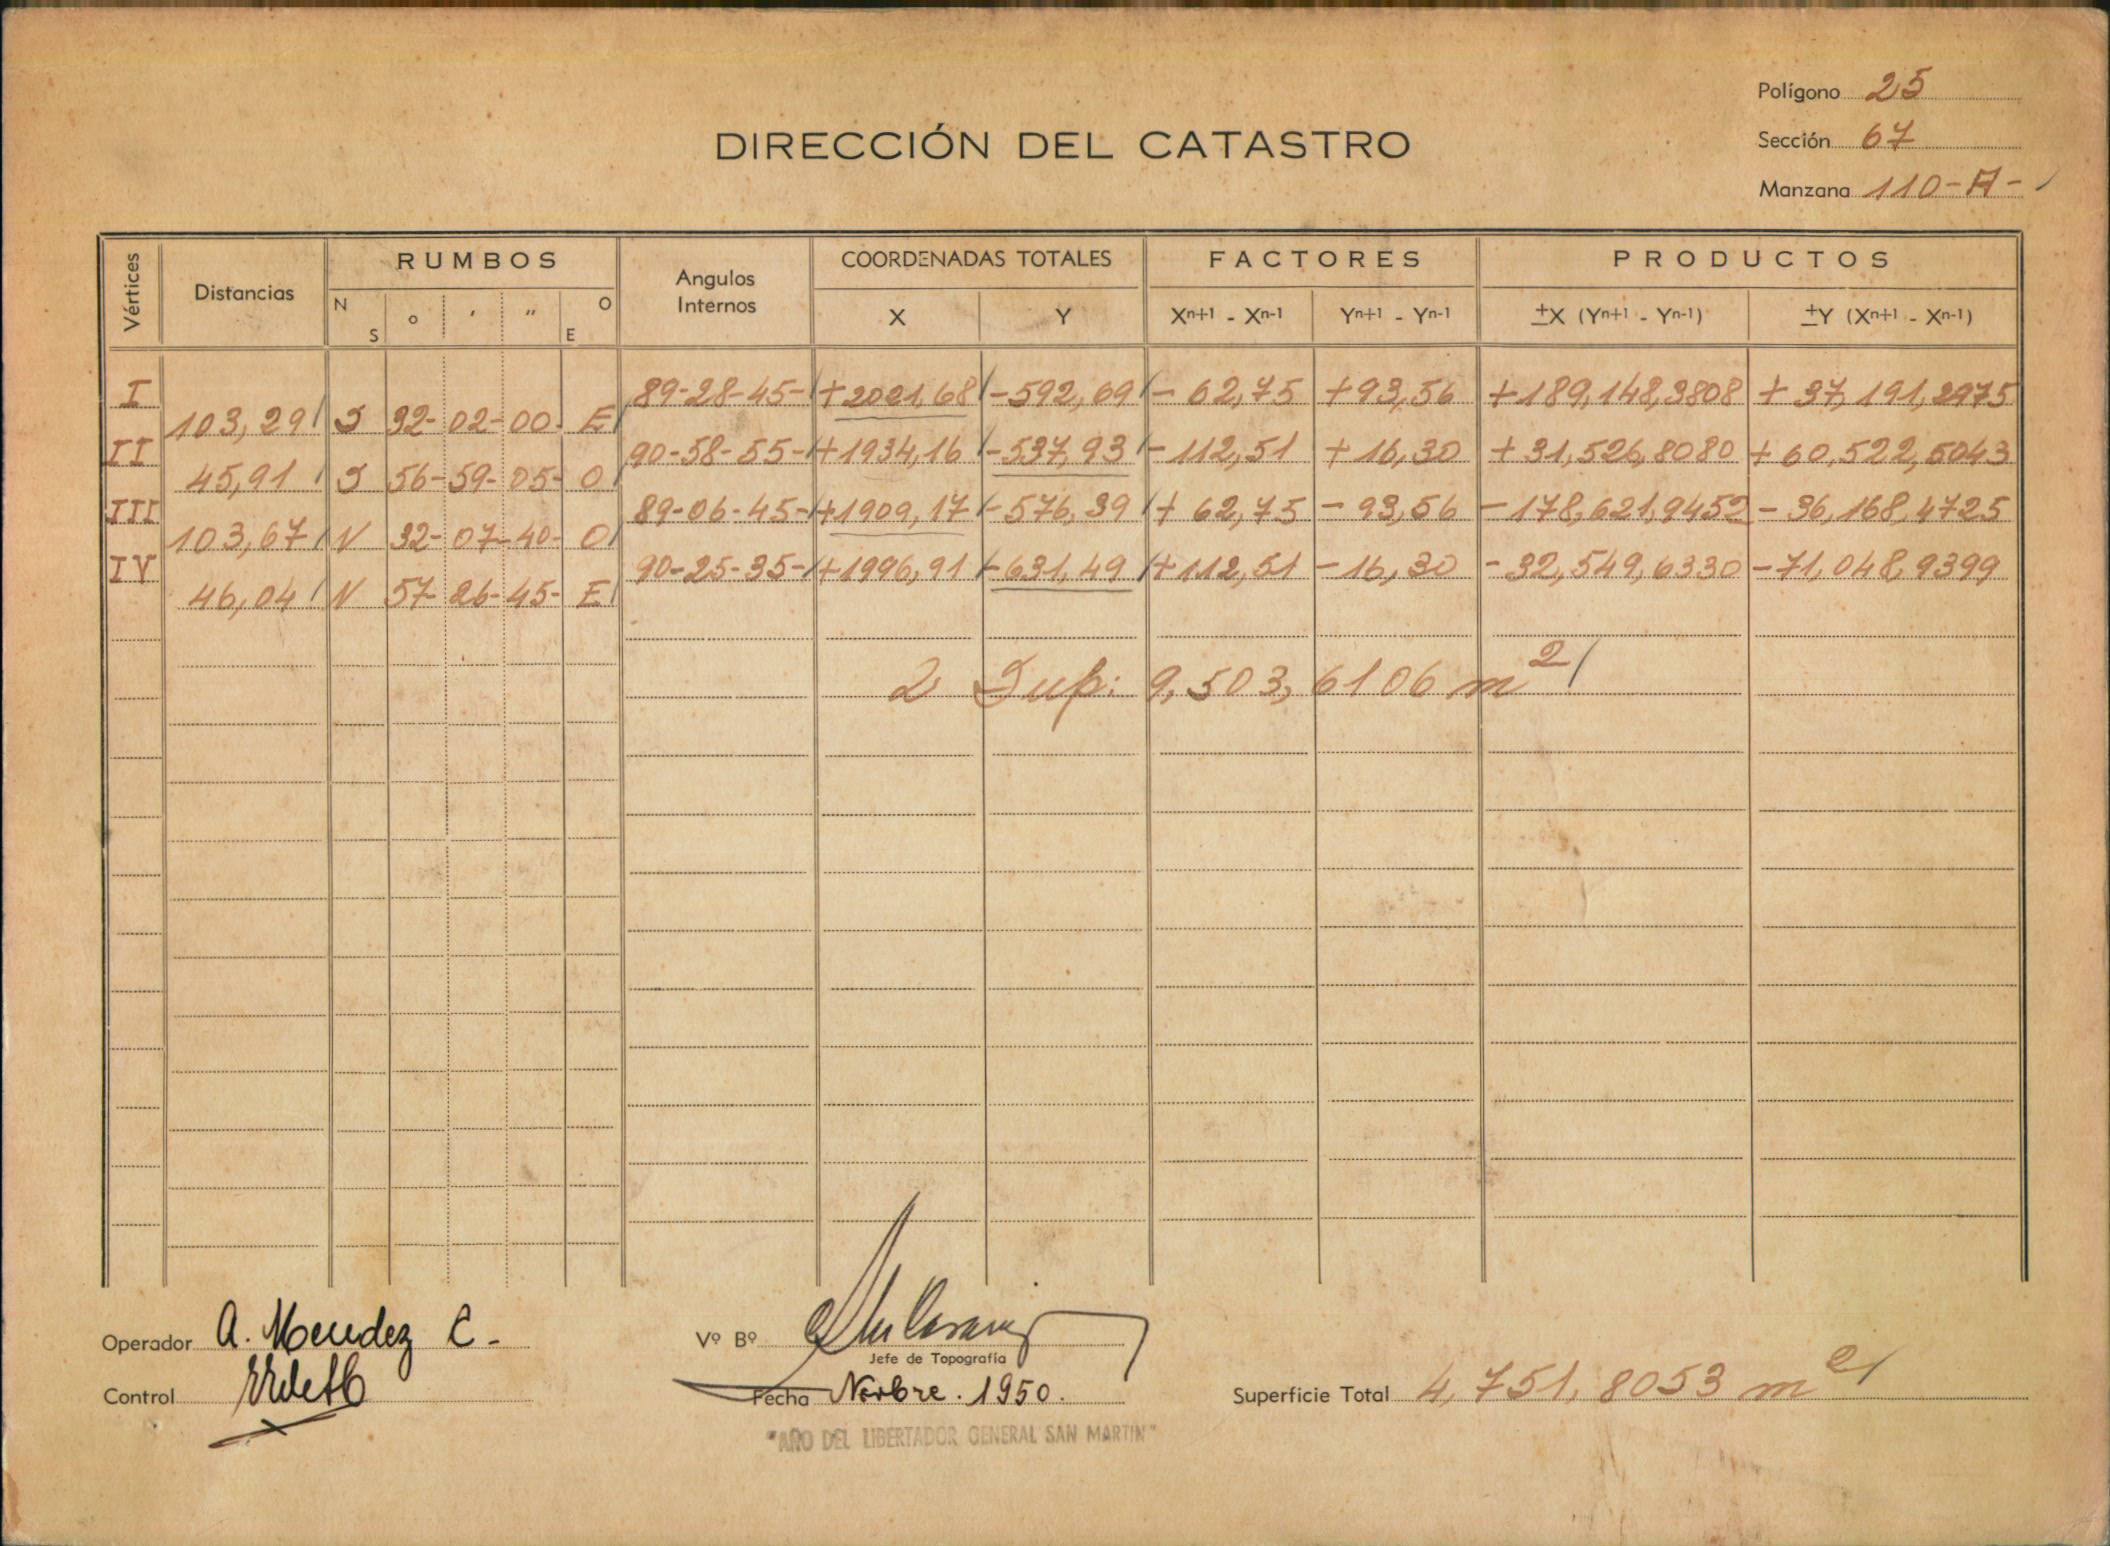 Polígono 25
DIRECCIÓN DEL CATASTRO
Sección 67
Manzana 110-A-
Vértices Distancias RUMBOS N S o ' " O E Angulos Internos COORDENADAS TOTALES X Y FACTORES Xn+1 - Xn-1 Yn+1 - Yn-1 PRODUCTOS ±X (Yn+1 - Yn-1) ±Y (Xn+1 - Xn-1)
I 89-28-45- +2021,68 -592,69 - 62,75 +93,56 +189,148,3808 + 37,191,2975
103,29 S 32- 02- 00- E
II 90-58-55- +1934,16 -537,93 -112,51 +16,30 +31,526,8080 +60,522,5043
45,91 S 56- 59- 05- O
III 89-06-45- +1909,17 -576,39 + 62,75 - 93,56 -178,621,9452 - 36,168,4725
103,67 N 32- 07- 40- O
IV 90-25-35- +1996,91 -631,49 +112,51 -16,30 -32,549,6330 -71,048,9399
46,04 N 57- 26- 45- E
2 Sup: 9,503,6106 m2
Operador A. Mendez C-
Vº Bº
Jefe de Topografía
Control
Fecha Novbre. 1950.
Superficie Total 4,751,8053 m2
"AÑO DEL LIBERTADOR GENERAL SAN MARTIN"